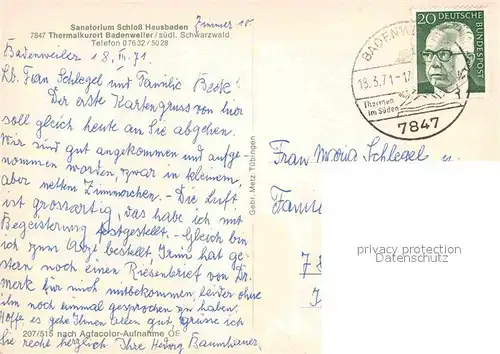 Sanatorium Schloß Hausbaden
Zimmer 18
7847 Thermalkurort Badenweiler / südl. Schwarzwald
Telefon 07632 / 5028
Badenweiler 18. III. 71.
Lb. Frau Schlegel und Familie Beck!
Der erste Kartengruss von hier
soll gleich heute an Sie abgehen.
Wir sind gut angekommen und aufge-
nommen worden, zwar in kleinem
aber netten Zimmerchen. - Die Luft
ist grossartig, das habe ich mit
Begeisterung festgestellt. - Gleich bin
ich zum Arzt bestellt, Irmi hat ge-
stern noch einen Riesenbrief von Dr.
Merk für mich mitbekommen, leider ohne
ihn noch einmal gesprochen zu haben.
Hoffe es gehe Ihnen allen gut, grüsse ich
Sie recht herzlich Ihre Hedwig Baumhauer,
207/515 nach Agfacolor-Aufnahme OE
Gebr. Metz, Tübingen
20 DEUTSCHE
BUNDESPOST
BADENW
18.3.71-17
im Süden
7847
Frau Maria Schlegel u.
7
privacy protection
Datenschutz